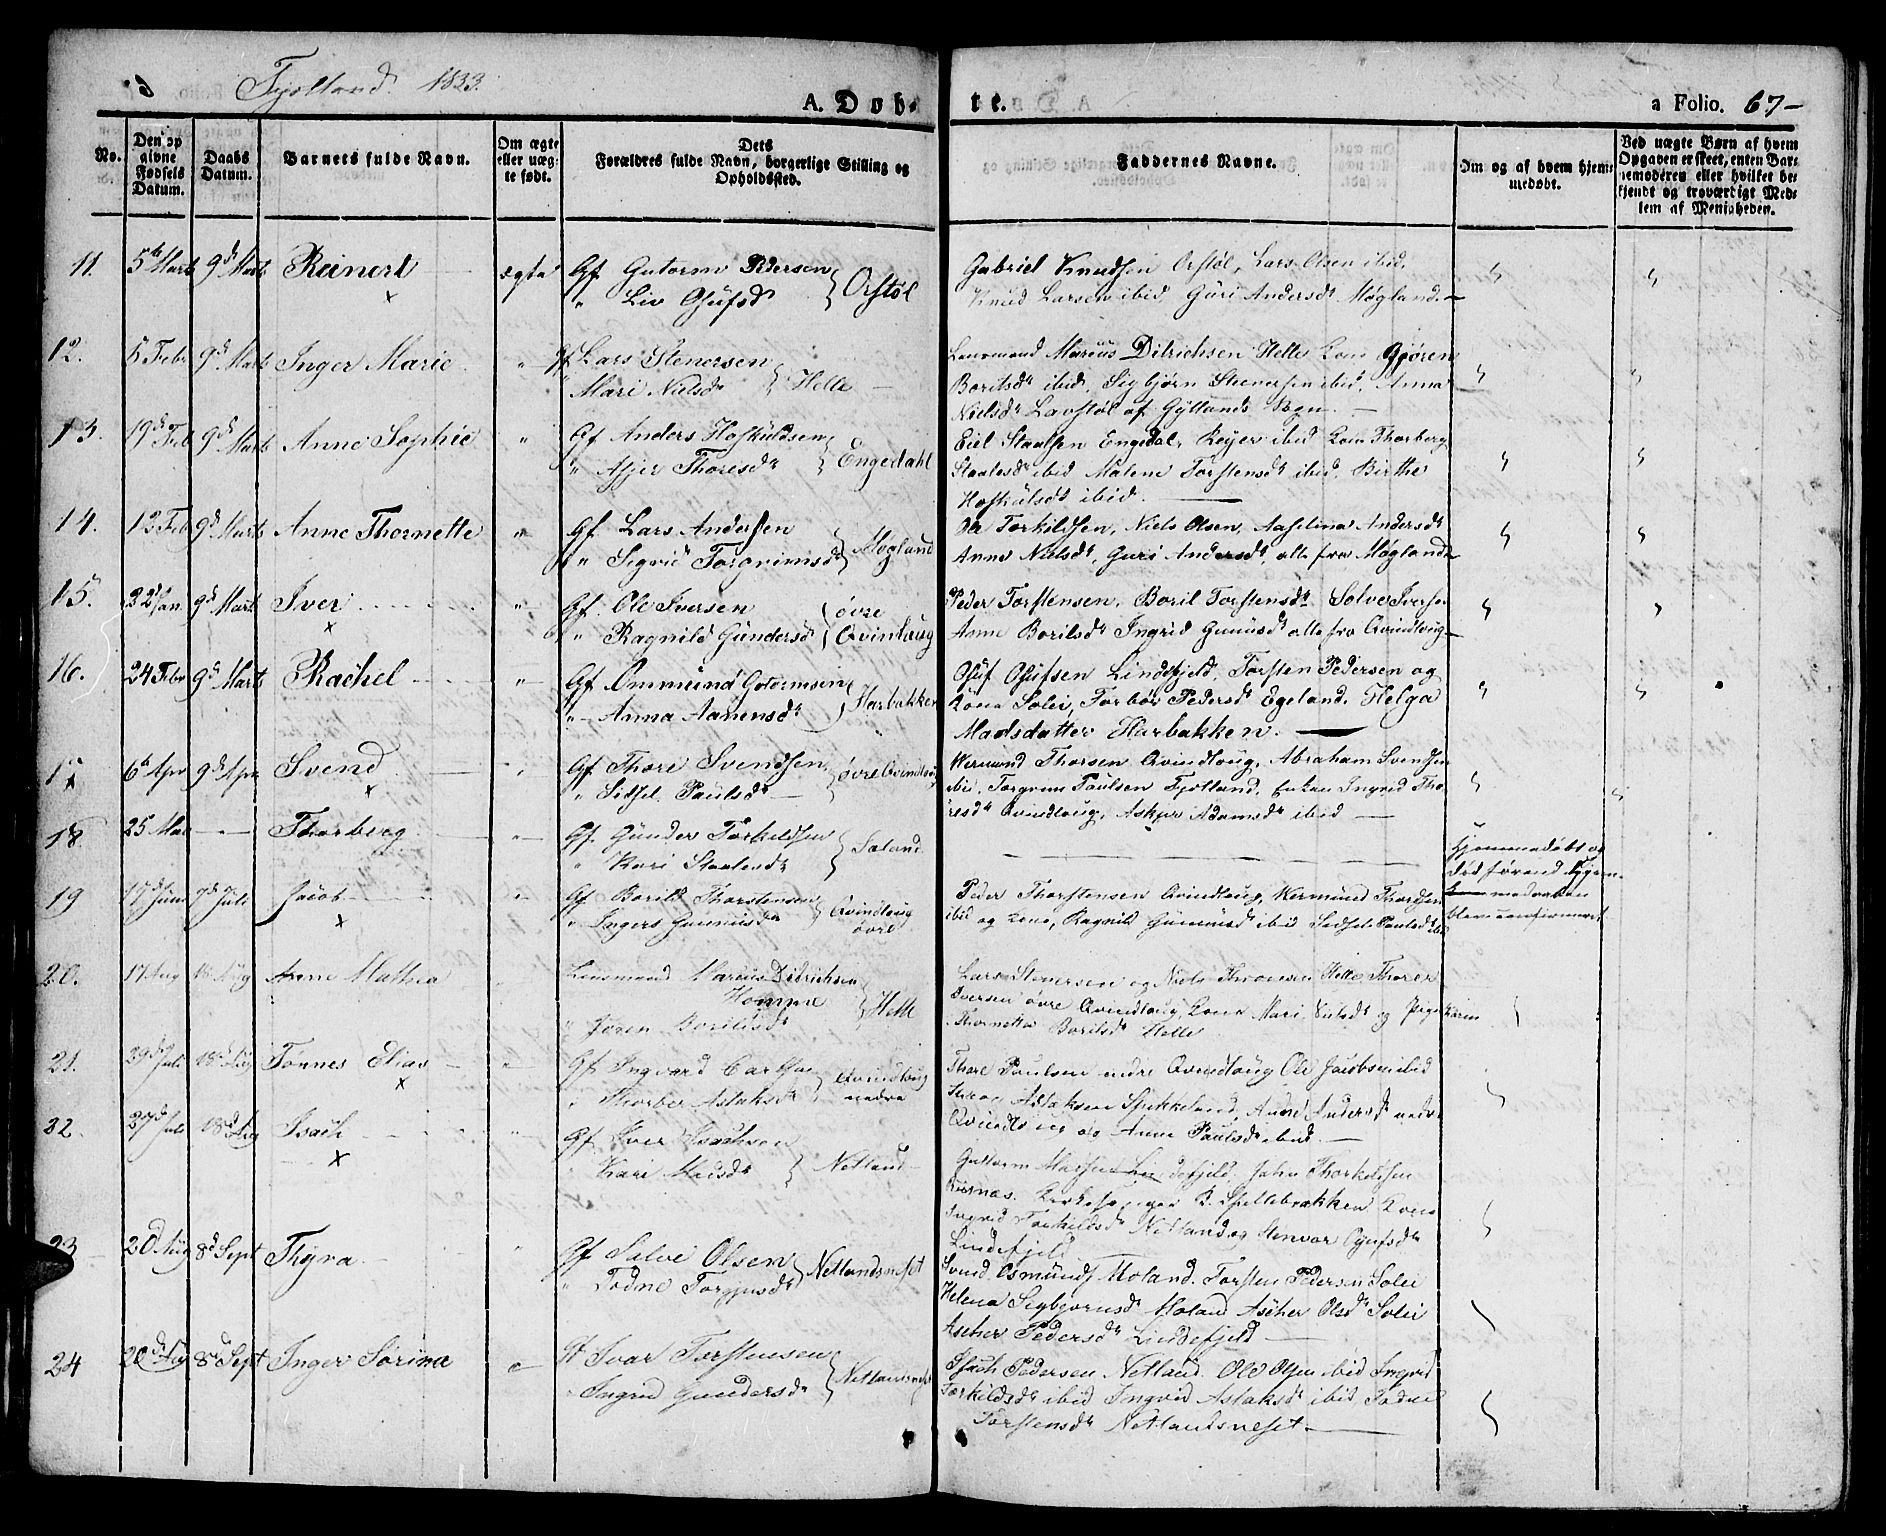 Fjotland 1833.
A. Døb-
te.
a Folio. 67-
No.
Den op
givne
Fødsels
Datum.
Daabs
Datum.
Barnets fulde Navn.
Om ægte
eller uæg-
te født.
Dets
Forældres fulde Navn, borgerlige Stilling og
Opholdssted.
Faddernes Navne.
Om og af hvem hjem-
medøbt.
Ved uægte Børn af hvem
Opgaven er skeet, enten Bar-
nemoderen eller hvilket be-
kjendt og troværdigt Med-
lem af Menigheden.
11. 5te Marts 9d Marts Reinert ægte Gf Gutorm Pedersen
" Liv Osufsd Orstøl
Gabriel Knudsen Orstøl, Lars Olsen ibid,
Knud Larsen ibid, Guri Andersdr Møgland.-
12. 5 Febr 9d Marts Inger Marie " Gf Lars Stenersen
" Mari Nielsdr Helle
Lensmand Marcus Ditrichsen Helle Kone Gjøren
Borilsdr ibid, Sigbjørn Steenersen ibid, Anna
Nielsdr Lavstøl af Gyllands Sogn.
13. 19d Feb 9d Marts Anne Sophie " Gf Anders Hofkuldsen
" Asjer Thoresdr Engedahl
Eiel Staalsen Engedal, Reyer ibid Kone Thorberg
Staalesdr ibid Malene Torstensdr ibid, Birthe
Hofkulsdr ibid.
14. 12 Feb 9d Marts Anne Thornette " Gf Lars Andersen
" Sigrid Torgrimsdr Møgland
Ole Torkildsen, Niels Olsen, Aaselina Andersdr
Anne Nielsdr, Guri Andersdr, alle fra Møgland
15. 22 Jan 9d Marts Iver " Gf Ole Iversen
" Ragnild Gundersdr øvre Qvinlaug
Peder Torstensen, Boril Torstensdr Solve Iversen
Anne Borilsdr Ingrid Gunusdr alle fra Qvindlaug
16. 24 Febr 9d Marts Rachel " Gf Ommund Gotormsen
" Anna Aanensdr Harbakken
Osuf Osufsen Lindefjeld, Torsten Pedersen og
Kone Solei, Torbør Pedersdr Egeland, Helga
Madsdatter Harbakken.
17 6te Apr 9d Apr Svend " Gf Thore Svendsen
" Sidsel Paulsdr øvre Qvindlaug
Wermund Thorsen Qvindlaug, Abraham Svendsen
ibid, Torgrim Paulsen Fjotland, Enken Ingrid Tho-
resdr Qvindlaug, Asker Adamsdr ibid
18 25 Mai Thorberg " Gf Gunder Torkildsen
" Kari Staalesdr Saland
Hjemmedøbt og
død førend Hjem-
medaaben
blev confirmeret
19 17d Juni 7d Juli Jacob " Gf Borild Thorstensen
" Ingers Gunnusdr Qvindlaug øvre
Peder Thorstensen Qvindlaug, Wermund Thordsen
ibid og Kone, Ragnild Gunnusd ibid Sidsel Paulsdr ibid
20. 17 Aug 18 Aug Anne Mathea Lensmand Marcus Ditrichsen
Homme
" Jøren Borildsdr Helle
Lars Stenersen og Niels Thronsen Helle, Thorer
Iversen øvre Qvindlaug, Kone Mari Nielsdr og Pige Karen
Thornette Borilsdr Helle
21. 29d Juli 18d Aug Tønnes Elias " Gf Ingvard Carlsen
" Thorber Aslaksdr Qvindlaug nedre
Thore Paulsen nedre Qvindlaug Ole Jacobsen ibid
Aslaksen Spikkeland, Andersdr nedre
Qvindlaug og Anne Paulsdr ibid.
22. 27d Juli 18d Aug Isach " Gf Iver Isachsen
" Kari Madsdr Netland
Guttorm Madsen Lindefjeld, John Thorkildsen
Kirkesanger B. Spellebrakken Kone
Ingrid Torkildsdr Netland og Stenvor Osufsdr
Lindefjeld
23 20d Aug 8d Sept Thyra " Gf Salve Olsen
" Todne Torgjusdr Netlandsneset
Svend Osmunds Moland, Torsten Pedersen Solei
Helena Segbjornsdr Moland Ascher Olsdr Solei
Ascher Pedersdr Lindefjeld
24 20d Aug 8d Sept Inger Sørine " Gf Ivar Torstensen
" Ingrid Gundersdr Netlandsneset
Isach Pedersen Netland, Ole Olsen ibid Ingrid
Torkildsdr ibid Ingrid Aslaksdr ibid Todne
Torstensdr Netlandsneset